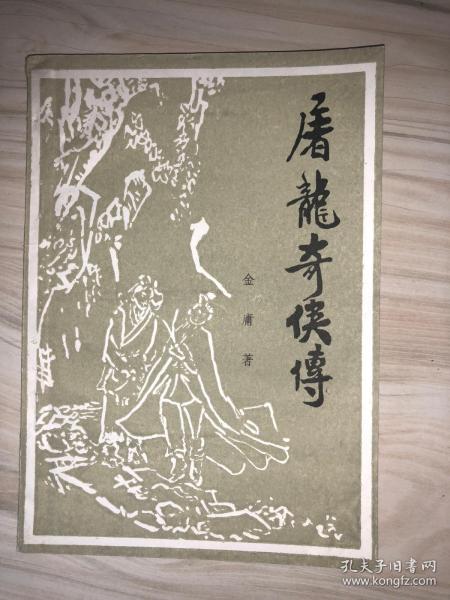 屠龍奇俠傳
金庸著
孔夫子旧书网
www.kongfz.com